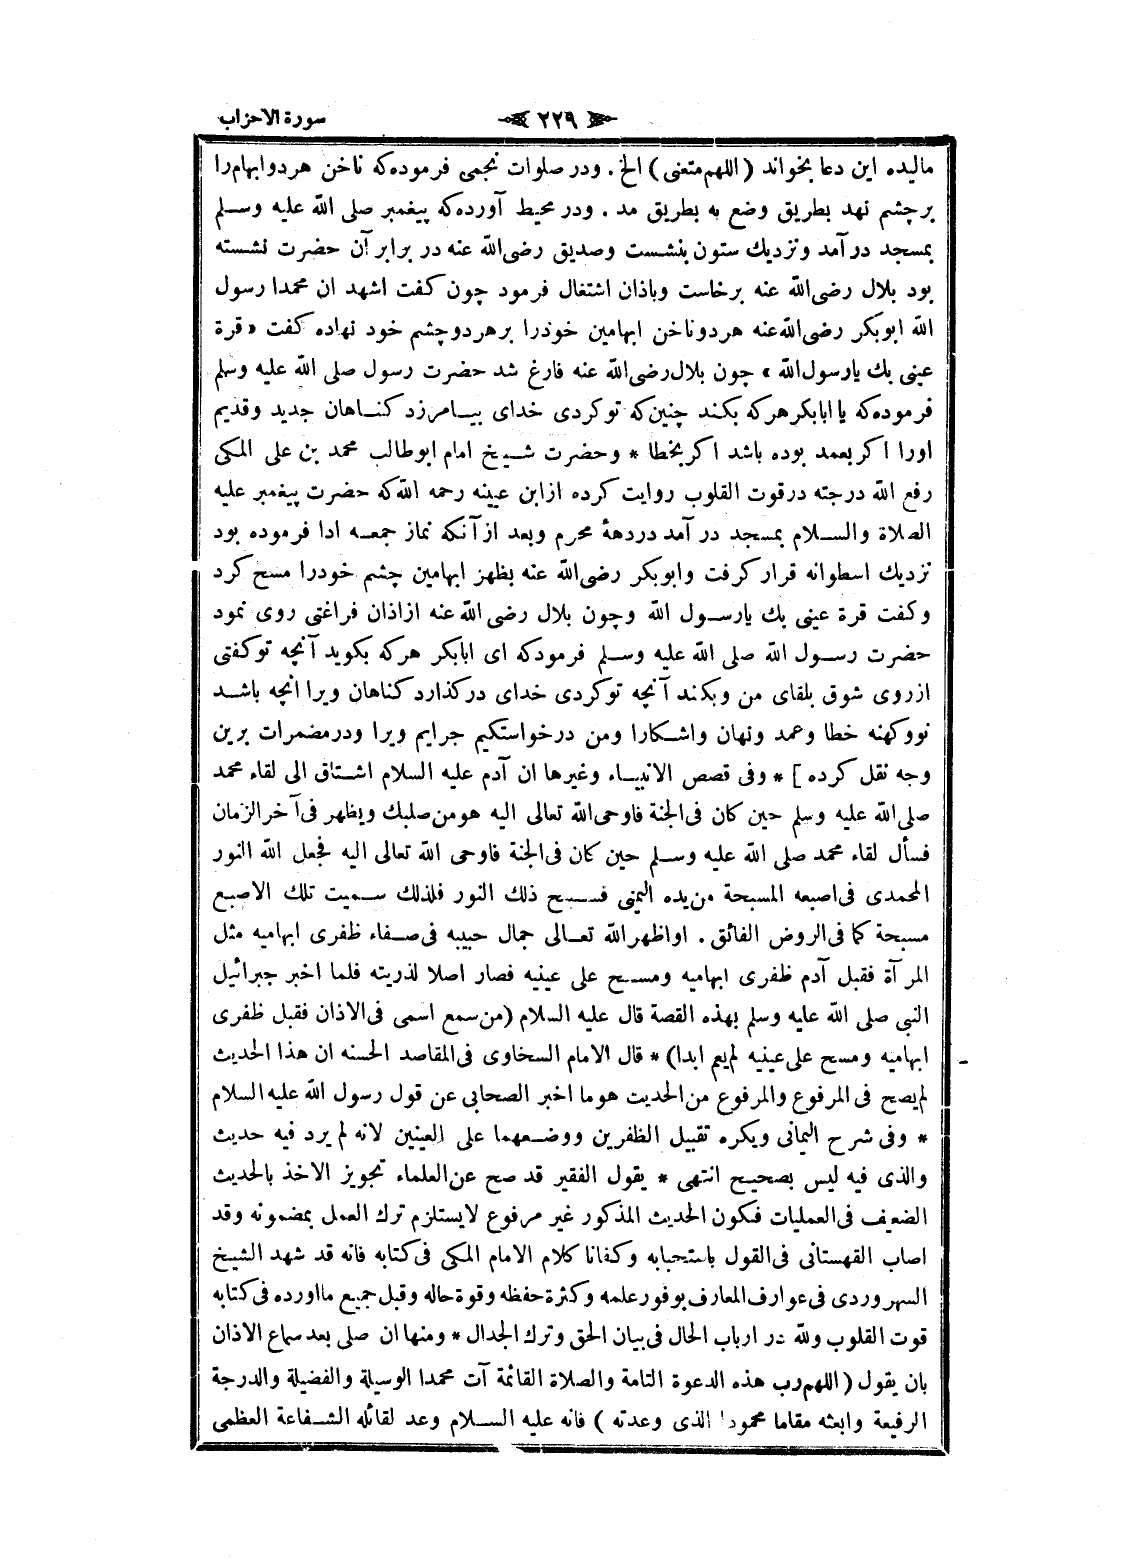 سورة الاحزاب
٢٢٩
ماليده اين دعا بخواند (اللهم متعنى) الخ . ودر صلوات نجمى فرموده كه ناخن هر دو ابهام را
بر چشم نهد بطريق وضع نه بطريق مد . ودر محيط آورده كه پيغمبر صلى الله عليه وسلم
بمسجد در آمد ونزديك ستون بنشست وصديق رضى الله عنه در برابر آن حضرت نشسته
بود بلال رضى الله عنه برخاست وباذان اشتغال فرمود چون كفت اشهد ان محمدا رسول
الله ابوبكر رضى الله عنه هر دو ناخن ابهامين خودرا بر هر دو چشم خود نهاده كفت « قرة
عينى بك يارسول الله » چون بلال رضى الله عنه فارغ شد حضرت رسول صلى الله عليه وسلم
فرموده كه يا ابابكر هر كه بكند چنين كه تو كردى خداى بيامرزد كناهان جديد وقديم
اورا اكر بعمد بوده باشد اكر بخطا * وحضرت شيخ امام ابوطالب محمد بن على المكى
رفع الله درجته در قوت القلوب روايت كرده از ابن عيينه رحمه الله كه حضرت پيغمبر عليه
الصلاة والسلام بمسجد در آمد در دهۀ محرم وبعد از آنكه نماز جمعه ادا فرموده بود
نزديك اسطوانه قرار كرفت وابوبكر رضى الله عنه بظهر ابهامين چشم خودرا مسح كرد
وكفت قرة عينى بك يارسول الله وچون بلال رضى الله عنه از اذان فراغتى روى نمود
حضرت رسول الله صلى الله عليه وسلم فرمود كه اى ابابكر هر كه بكويد آنچه تو كفتى
از روى شوق بلقاى من وبكند آنچه تو كردى خداى در كذارد كناهان ويرا انچه باشد
نو وكهنه خطا وعمد ونهان واشكارا ومن در خواستكيم جرايم ويرا ودر مضمرات برين
وجه نقل كرده ] * وفى قصص الانبياء وغيرها ان آدم عليه السلام اشتاق الى لقاء محمد
صلى الله عليه وسلم حين كان فى الجنة فاوحى الله تعالى اليه هو من صلبك ويظهر فى آخر الزمان
فسأل لقاء محمد صلى الله عليه وسلم حين كان فى الجنة فاوحى الله تعالى اليه فجعل الله النور
المحمدى فى اصبعه المسبحة من يده اليمنى فسبح ذلك النور فلذلك سميت تلك الاصبع
مسبحة كما فى الروض الفائق . او اظهر الله تعالى جمال حبيبه فى صفاء ظفرى ابهاميه مثل
المرآة فقبل آدم ظفرى ابهاميه ومسح على عينيه فصار اصلا لذريته فلما اخبر جبرائيل
النبى صلى الله عليه وسلم بهذه القصة قال عليه السلام (من سمع اسمى فى الاذان فقبل ظفرى
ابهاميه ومسح على عينيه لم يعم ابدا) * قال الامام السخاوى فى المقاصد الحسنه ان هذا الحديث
لم يصح فى المرفوع والمرفوع من الحديث هو ما اخبر الصحابى عن قول رسول الله عليه السلام
* وفى شرح اليمانى ويكره تقبيل الظفرين ووضعهما على العينين لانه لم يرد فيه حديث
والذى فيه ليس بصحيح انتهى * يقول الفقير قد صح عن العلماء تجويز الاخذ بالحديث
الضعيف فى العمليات فكون الحديث المذكور غير مرفوع لا يستلزم ترك العمل بمضمونه وقد
اصاب القهستانى فى القول باستحبابه وكفانا كلام الامام المكى فى كتابه فانه قد شهد الشيخ
السهروردى فى عوارف المعارف بوفور علمه وكثرة حفظه وقوة حاله وقبل جميع ما اورده فى كتابه
قوت القلوب ولله در ارباب الحال فى بيان الحق وترك الجدال * ومنها ان صلى بعد سماع الاذان
بان يقول (اللهم رب هذه الدعوة التامة والصلاة القائمة آت محمدا الوسيلة والفضيلة والدرجة
الرفيعة وابعثه مقاما محمودا الذى وعدته ) فانه عليه السلام وعد لقائله الشفاعة العظمى